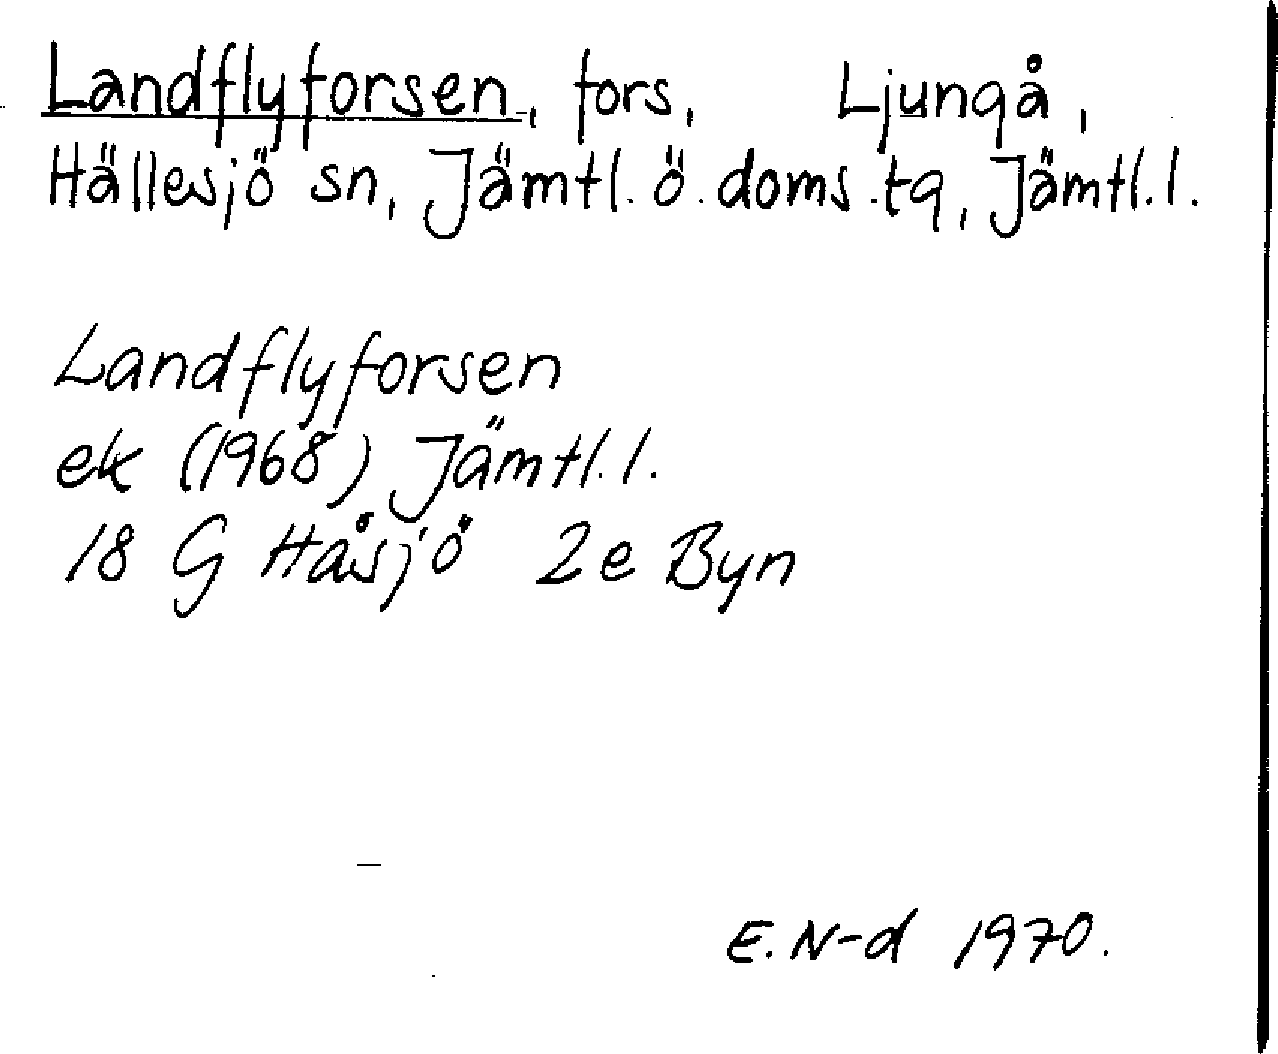 Landflyforsen, fors, Ljungå,
Hällesjö sn, Jämtl. ö. doms.tg, Jämtl.l.
Landflyforsen
ek (1968) Jämtl.l.
18 G Håsjö 2e Byn
E.N-d 1970.